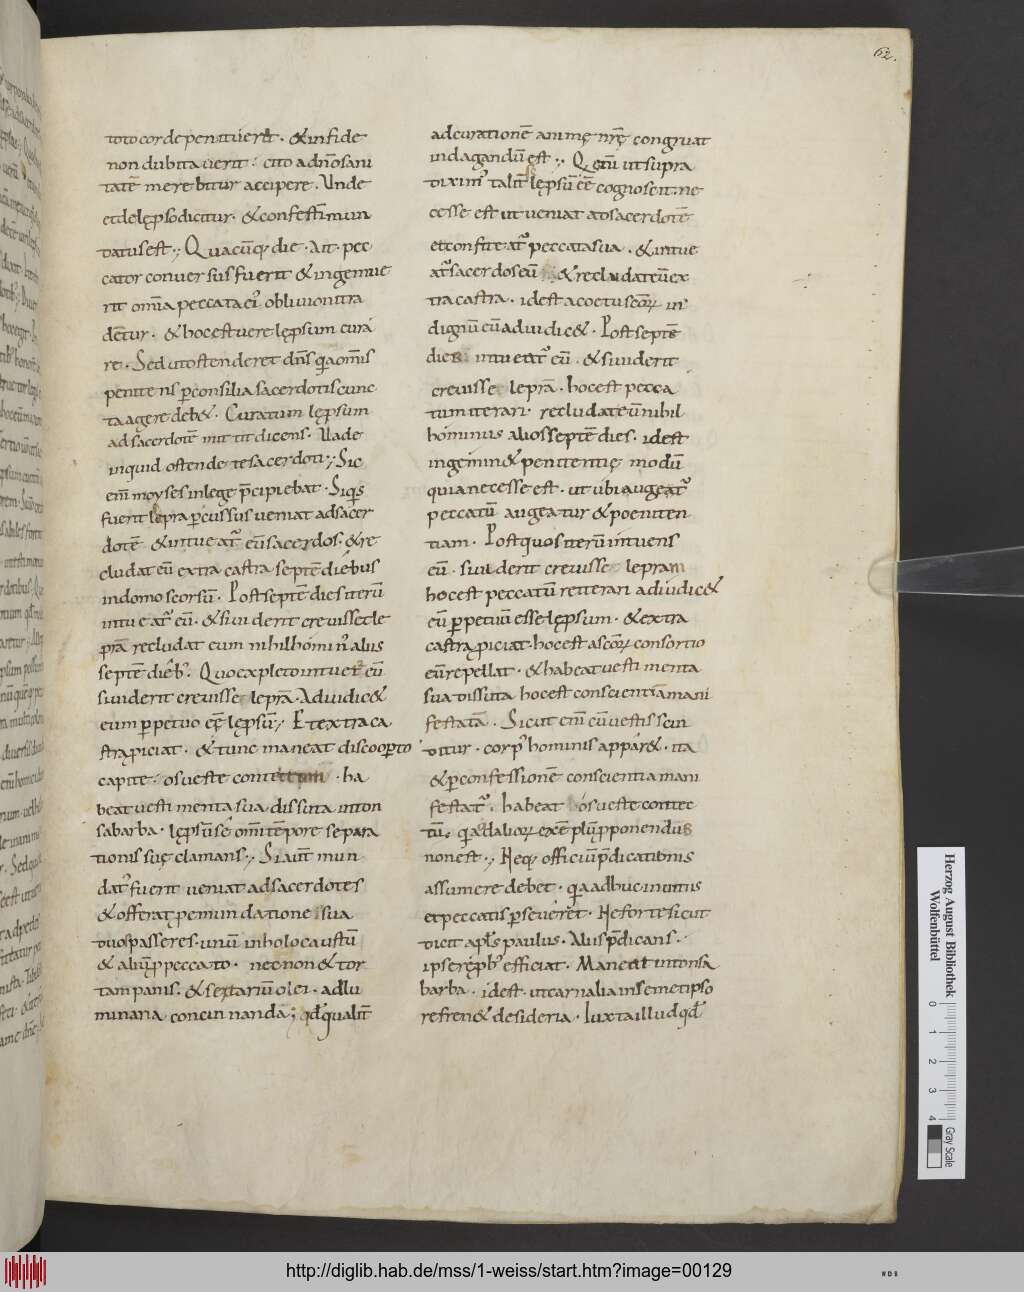 62.
toto corde penituerit. & in fide
non dubitauerit: cito ad dn̄o sani
tatē merebitur accipere. Unde
et de lępso dicitur. & confestī mun
datus est.; Quacūq; die. Ait. pec
cator conuersus fuerit & ingemue
rit om̄ia peccata ei' obliuioni tra
dētur. & hoc est uere lępsum cura
re. Sed ut ostenderet dn̄s qa om̄is
penitens p̄ consilia sacerdotis cunc
ta agere deb&. Curatum lępsum
ad sacerdotē mittit dicens. Uade
inquid ostende te sacerdoti; Sic
enī moyses in lege p̄cipiebat. Siq̄s
fuerit lepra p̄cussus ueniat ad sacer
dotē & intueat' eū sacerdos. & re
cludat eū extra castra septē diebus
in domo seorsū. Post septē dies iterū
intueat' eū. & si uiderit creuisse le
prā recludat eum nihilhomin' aliis
septē dieb'. Quo expleto intuet' eū
si uiderit creuisse leprā. Adiudic&
eum perpetuo eē lępsū; Et extra ca
stra piciat. & tunc maneat discoop̄to
capite: os ueste contectum. ha
beat uestimenta sua dissuta inton
sa barba. lępsū se om̄i tēpore separa
tionis suę clamans.; Si aūt mun
dat' fuerit ueniat ad sacerdotes
& offerat pemundatione sua
duos passeres. unū in holocaustū
& aliū p peccato. necnon & tor
tam panis. & sextariū olei. ad lu
minaria concinnanda; qd' qualit̄
ad curationē animę nr̄ę congruat
indagandū est.; Q etū ut supra
diximꝰ talit̄ lępsū eē cognoscit. ne
cesse est ut ueniat ad sacerdotē
et confiteat' peccata sua. & intue
at' sacerdos eū & recludat eū ex
tra castra. id est a coetu scōꝝ in
dignū eū adiudic&. Post septē
dies intueat' eū. & si uiderit
creuisse leprā. hoc est pecca
tum iterari. recludat eū nihil
hominus alios septē dies. id est
ingemin& penitentię modū
quia necesse est. ut ubi auget'
peccatū augeatur & poeniten
tiam. Post quos iterū intuens
eū. si uiderit creuisse lepram
hoc est peccatū reiterari adiudic&
eū p̄petuū esse lępsum. & extra
castra piciat. hoc est a scōꝝ consortio
eū repellat. & habeat uestimenta
sua dissuta hoc est conscientiā mani
festatā. Sicut enī cū uestis scin
ditur. corp' hominis appar&. ita
& p̄ confessionē conscientia mani
festat'. habeat os ueste contec
tū. qa ad alioꝝ exēplū pponendus
non est.; Neq; officiū p̄dicationis
assumere debet. qa adhuc in uitiis
et peccatis p̄seueret. Ne forte sicut
dicit apl's paulus. Aliis p̄dicans.
ipse rep̄b' efficiat. Maneat intonsa
barba. id est. ut carnalia in semetipso
refren& desideria. Iuxta illud qd'
Herzog August Bibliothek
Wolfenbüttel
0 1 2 3 4
Gray Scale
http://diglib.hab.de/mss/1-weiss/start.htm?image=00129